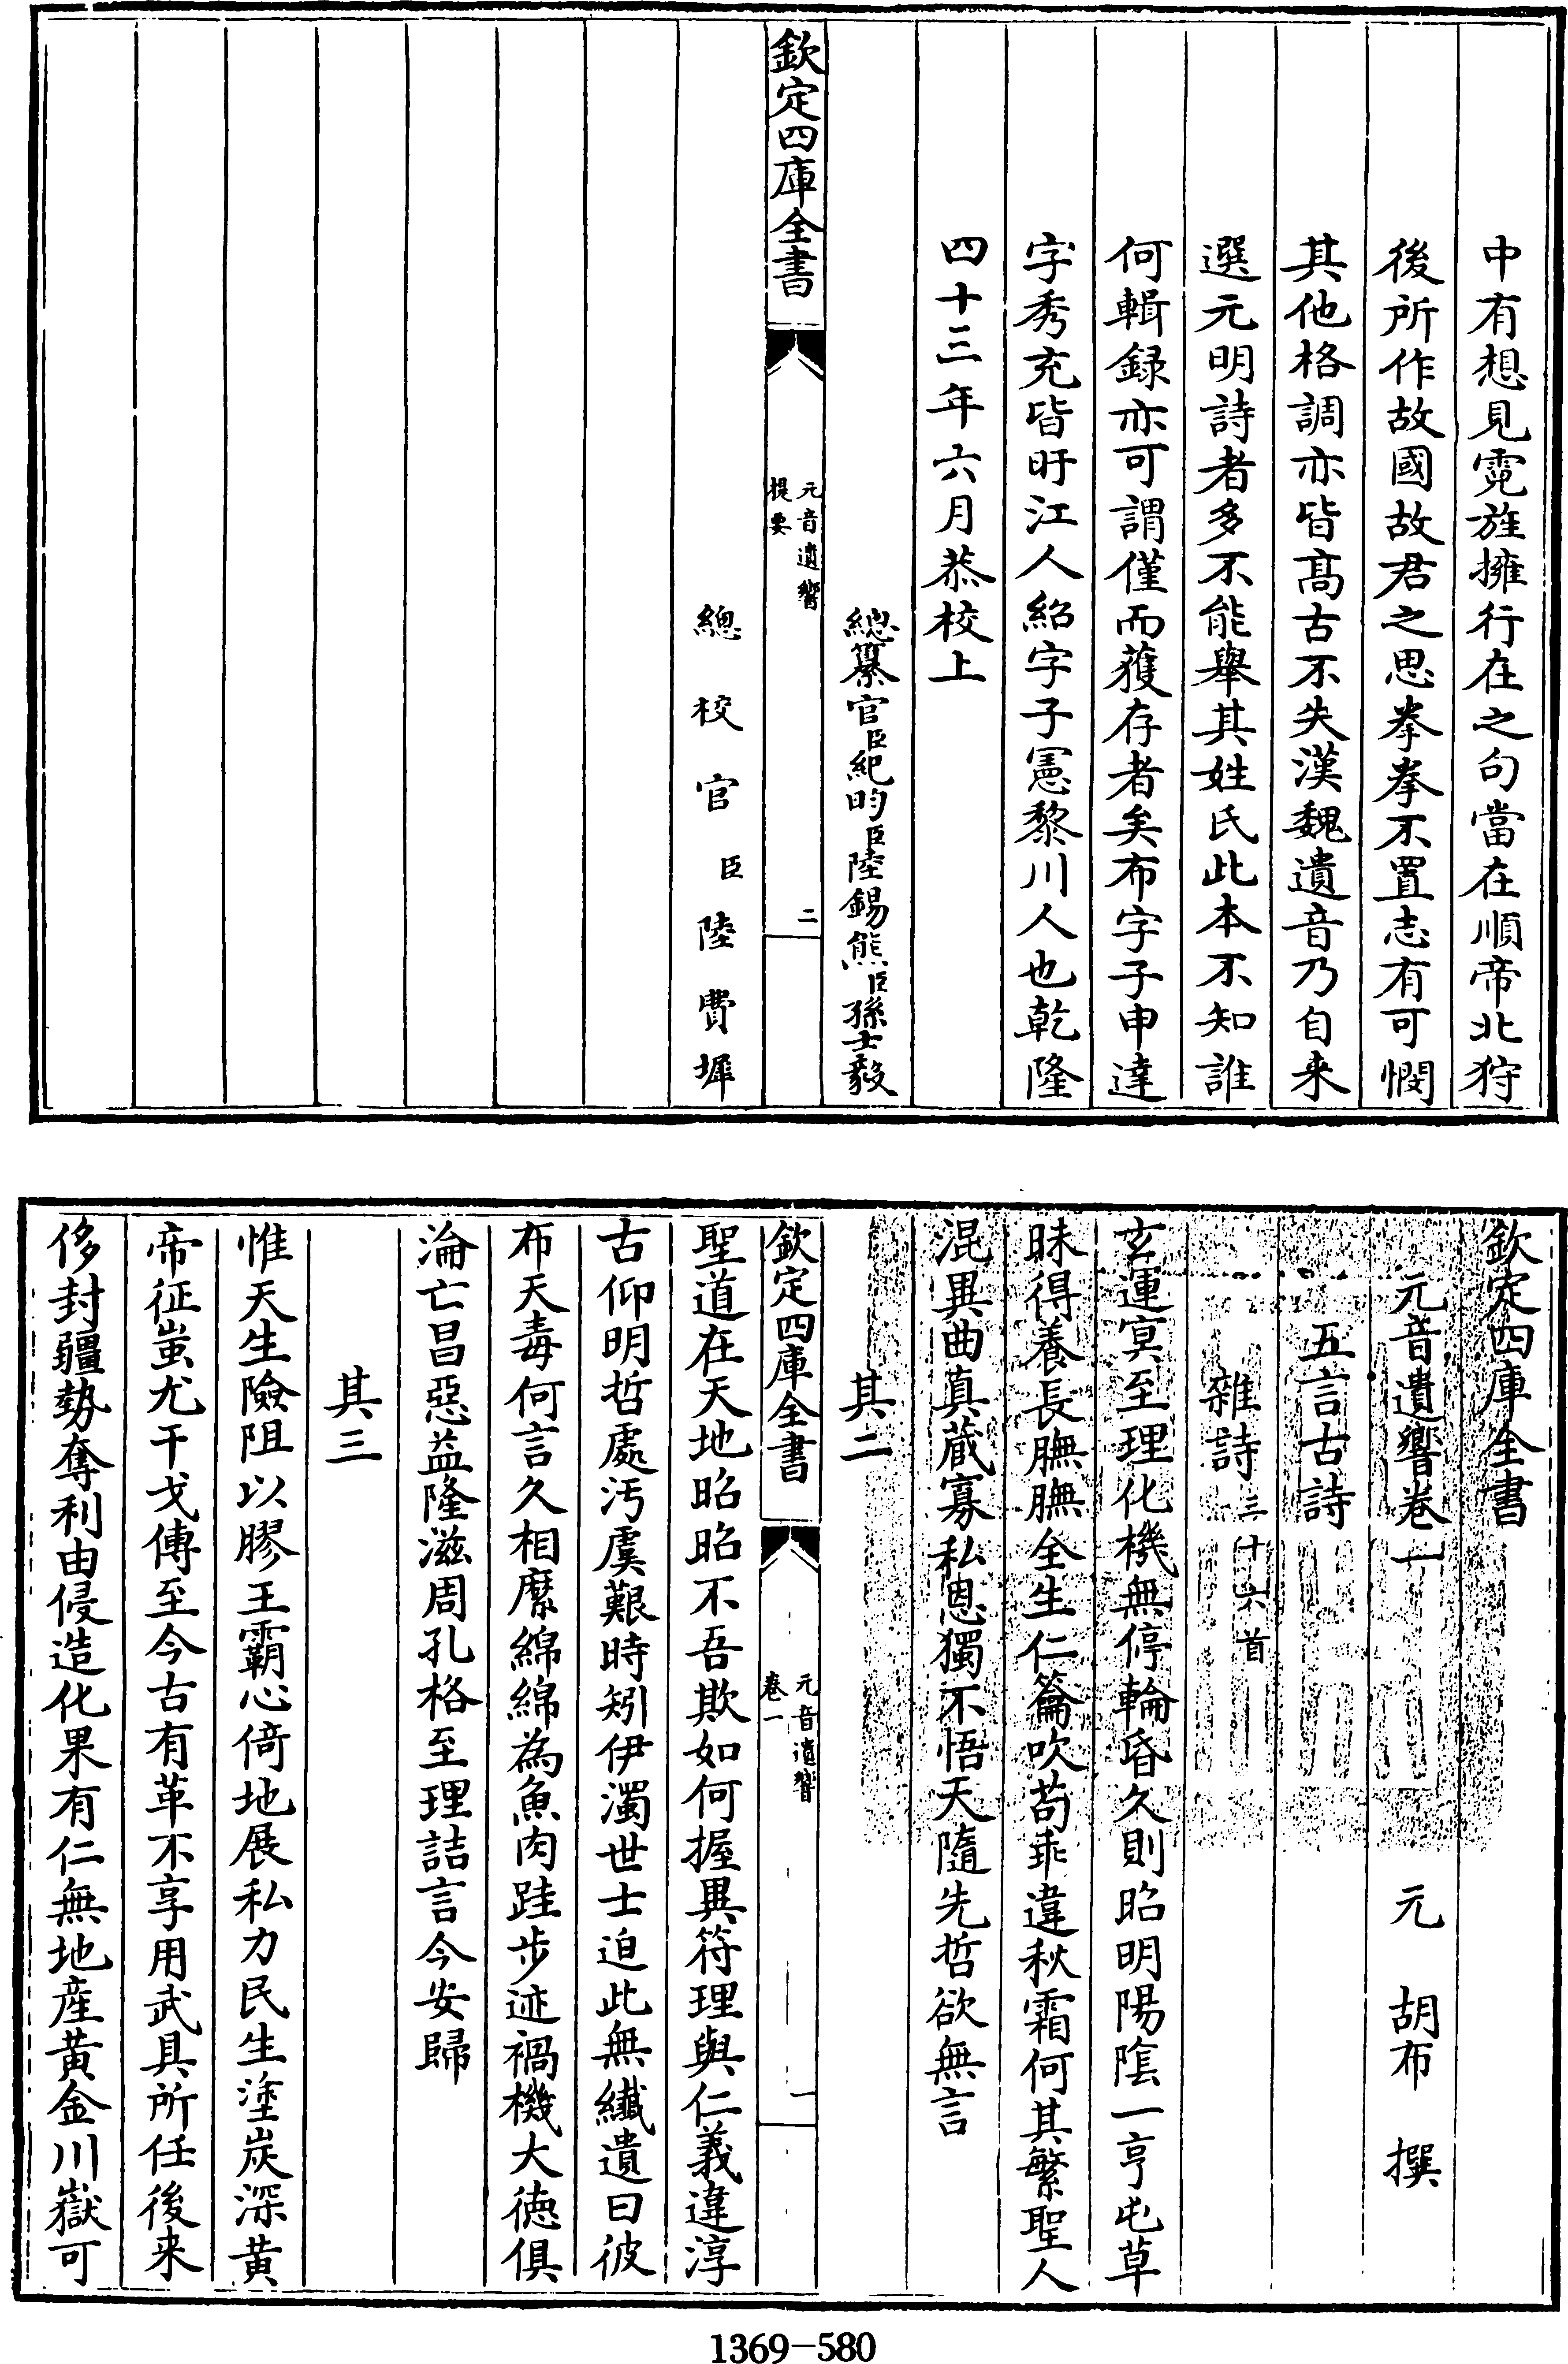 中有想見霓旌擁行在之句當在順帝北狩
後所作故國故君之思拳拳不置志有可憫
其他格調亦皆髙古不失漢魏遺音乃自来
選元明詩者多不能舉其姓氏此本不知誰
何輯録亦可謂僅而獲存者矣布字子申達
字秀充皆盱江人紹字子憲黎川人也乾隆
四十三年六月恭校上
總纂官臣紀昀臣陸錫熊臣孫士毅
欽定四庫全書
元音遺響
提要
二
總校官臣陸費墀
欽定四庫全書
元音遺響卷一
元胡布撰
五言古詩
雜詩三十六首
玄運冥至理化機無停輪昏久則昭明陽隂一亨屯草
昧得養長膴膴全生仁籥吹苟乖違秋霜何其繁聖人
混異曲真蔵寡私恩獨不悟天隨先哲欲無言
其二
欽定四庫全書
元音遺響
卷一
一
聖道在天地昭昭不吾欺如何握異符理與仁義違淳
古仰明哲處汚虞艱時矧伊濁世士迫此無纎遺曰彼
布天毒何言久相縻綿綿為魚肉跬步迹禍機大徳俱
淪亡昌惡益隆滋周孔格至理詰言今安歸
其三
惟天生險阻以膠王霸心倚地展私力民生塗炭深黄
帝征蚩尤干戈傳至今古有革不享用武具所任後来
侈封疆勢奪利由侵造化果有仁無地産黄金川嶽可
1369-580